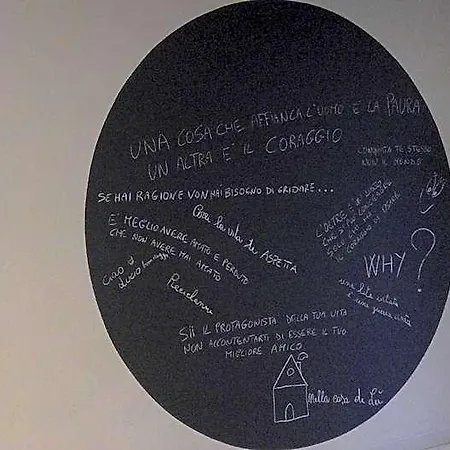 UNA COSA CHE AFFIANCA L'UOMO E LA PAURA
UN ALTRA E' IL CORAGGIO
CONQUISTA TE STESSO
NON IL MONDO
SE HAI RAGIONE NON HAI BISOGNO DI GRIDARE...
Cosa la vita ti ASPETTA
E' MEGLIO AVERE AMATO E PERDUTO
CHE NON AVERE MAI AMATO
L'OLTRE
IL CORAGGIO DI OSARE
Ciao
WHY?
una lite evitata
è una guerra vinta
SII IL PROTAGONISTA DELLA TUA VITA
NON ACCONTENTARTI DI ESSERE IL TUO
MIGLIORE AMICO.
Nella casa di Lù